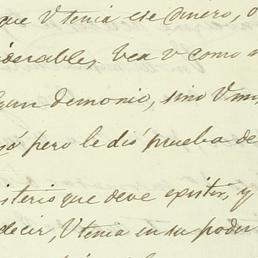 que V tenia ese dinero, o
siderables. Vea V como
gun demonio, sino V m
só pero le dió prueba de
isterio que deve existir, y
decir, V tenia en su poder